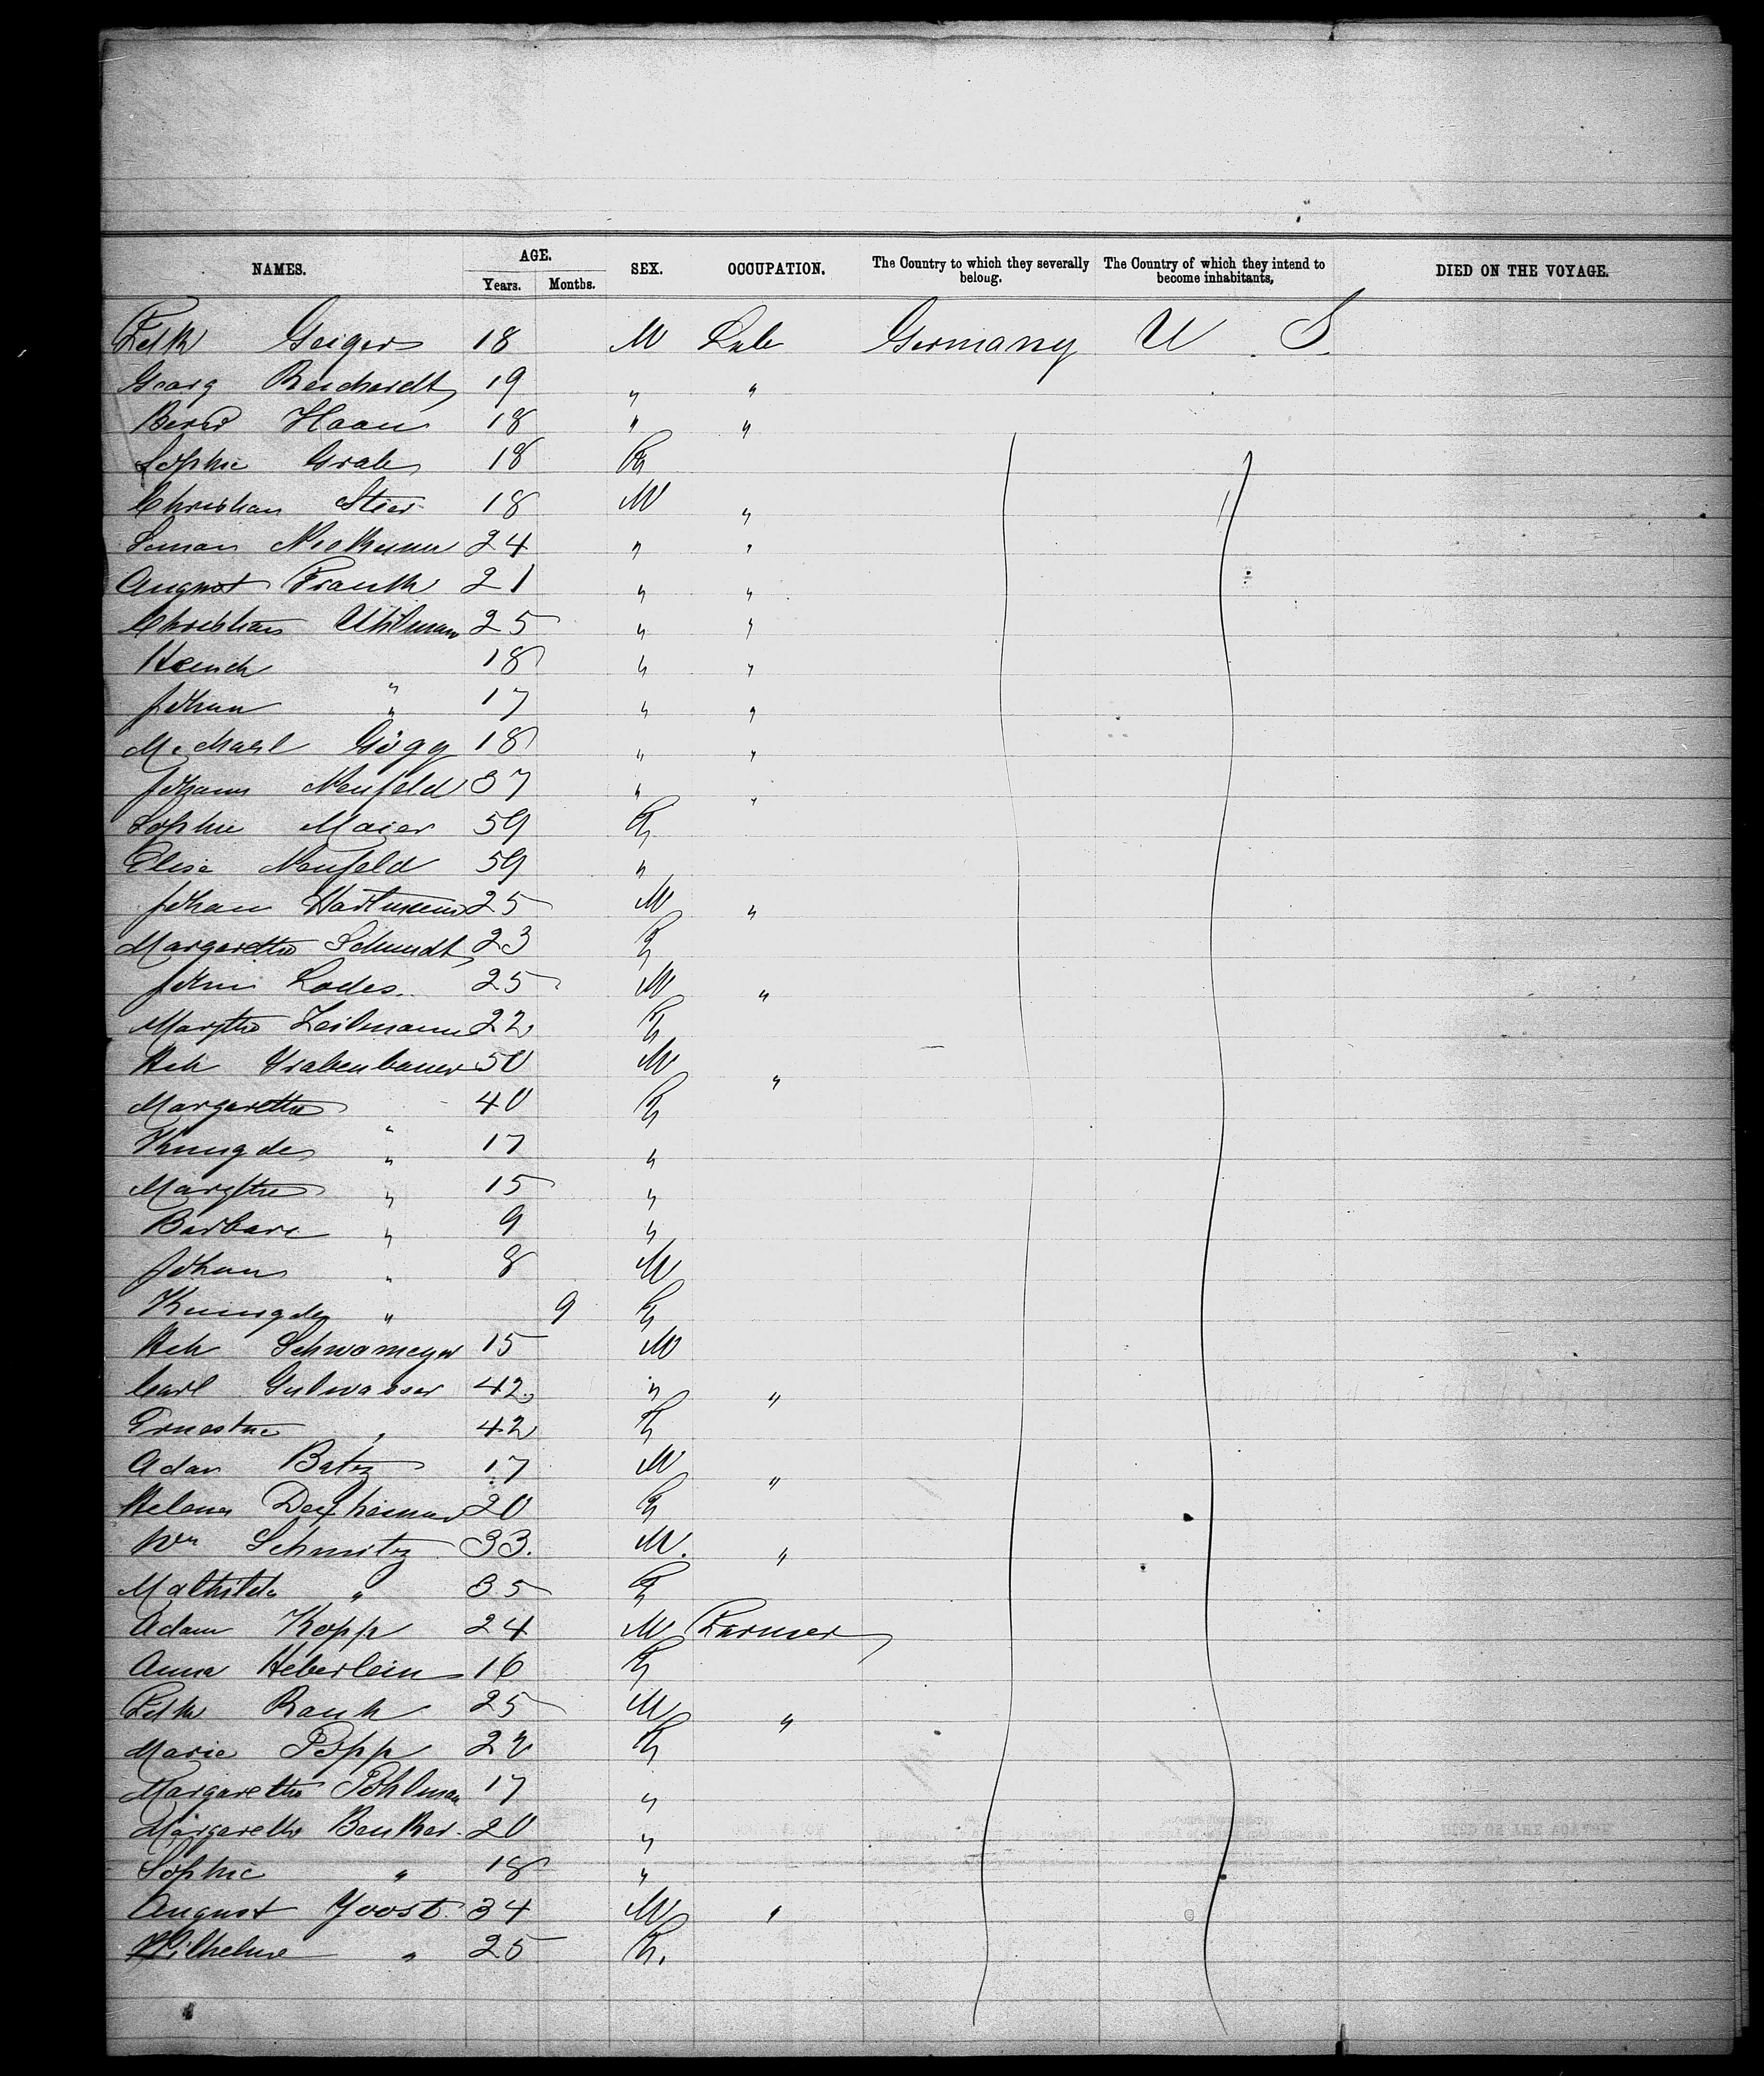 NAMES. AGE. Years. Months. SEX. OCCUPATION. The Country to which they severally belong. The Country of which they intend to become inhabitants, DIED ON THE VOYAGE.
Geiger 18 M Lab Germany U. S.
Georg Reichardt 19 " "
Bernd Haan 18 " "
Sophie Grab 18 F
Christian Stier 18 M "
24 " "
August Frank 21 " "
Christian Uhlman 25 " "
Heinch " 18 " "
Johan " 17 " "
Michael Gögg 18 " "
Johann Neufeld 37 " "
Sophie Maier 59 F
Elise Neufeld 59 "
Johan Hartmann 25 M "
Margaretha Schmidt 23 F
John Lodes. 25 M "
Margtha Zeilmann 22 F
Hch Grabenbauer 50 M "
Margaretha " 40 F
Kungde " 17 "
Margtha " 15 "
Barbara " 9 "
Johan " 8 M
Kunigde " 9 F
Hch Schwameyer 15 M
Carl Gutwasser 42 " "
Ernestne " 42 F
Adam Batz 17 M "
Helena 20 F
Wm Schmitz 33. M. "
Mathilda " 35 F
Adam Kopp 24 M Farmer
Anna Heberlein 16 F
Rauh 25 M "
Marie Popp F
Margaretha Pohlman 17 "
Margaretha Benker. 20 "
Sophie " 18 "
August Joost. 34 M "
Wilhelme " 25 F.